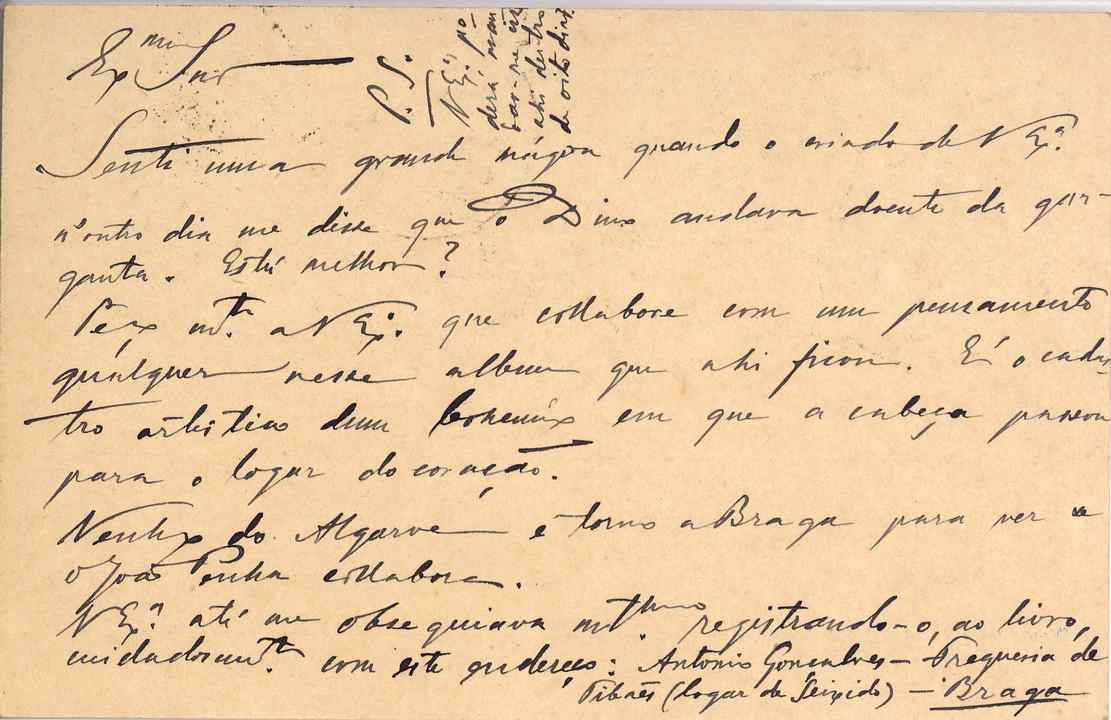 Ex.mo Snr
Senti uma grande mágoa quando o criado de V Ex.ª
n'outro dia me disse que o Diniz andava doente da gar-
ganta. Está melhor?
Peço m.to a V Ex.ª que collabore com um pensamento
qualquer nesse album que ahi ficou. É o cadas-
tro artistico dum bohemio em que a cabeça passou
para o logar do coração.
Venho do Algarve e torno a Braga para ver se
o João Penha collabora.
V Ex.ª até me obsequiava mt.mo registrando-o, ao livro,
cuidadosam.te com este endereço: Antonio Gonçalves – Freguesia de
Tibães (logar de Seixido) – Braga
P.S.
V Ex.ª po-
derá man-
dar-me isto
ahi dentro
de oito dias?